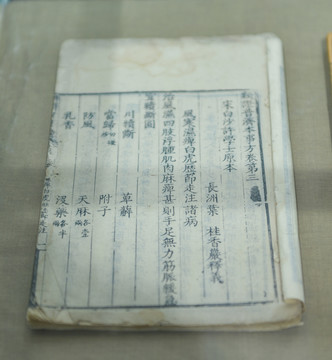 類證普濟本事方卷第三
宋白沙許學士原本
長洲葉 桂香巖釋義
風寒濕痺白虎歷節走注諸病
治風濕四肢浮腫肌肉麻痺甚則手足無力筋脈緩急
續斷圓
川續斷 萆薢
當歸 附子
防風 天麻各壹兩
乳香 沒藥各半兩